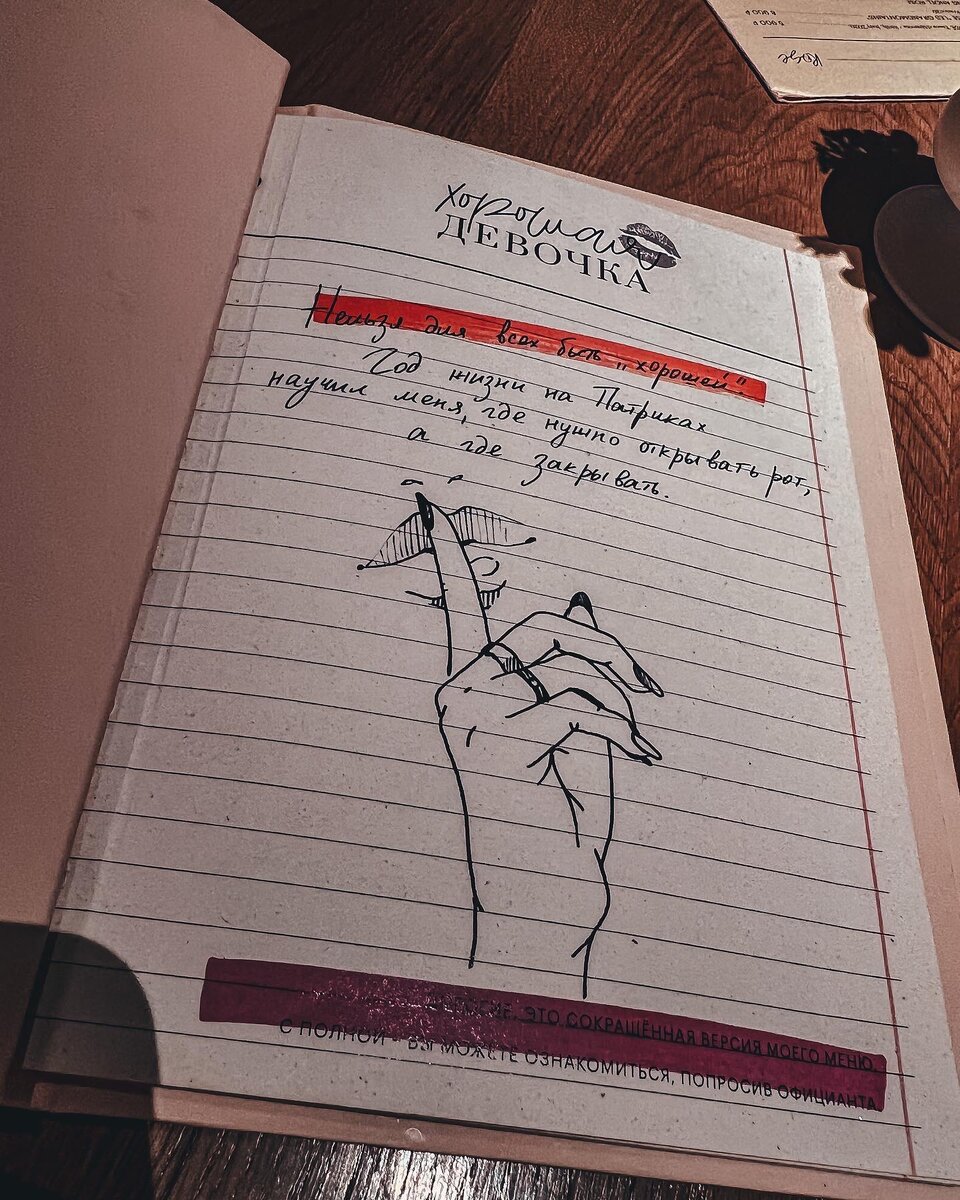 Rose
хорошая
ДЕВОЧКА
Нельзя для всех быть „хорошей"
Год жизни на Патриках
научил меня, где нужно открывать рот,
а где закрывать.
ЭТО СОКРАЩЁННАЯ ВЕРСИЯ МОЕГО МЕНЮ.
С ПОЛНОЙ - ВЫ МОЖЕТЕ ОЗНАКОМИТЬСЯ, ПОПРОСИВ ОФИЦИАНТА.